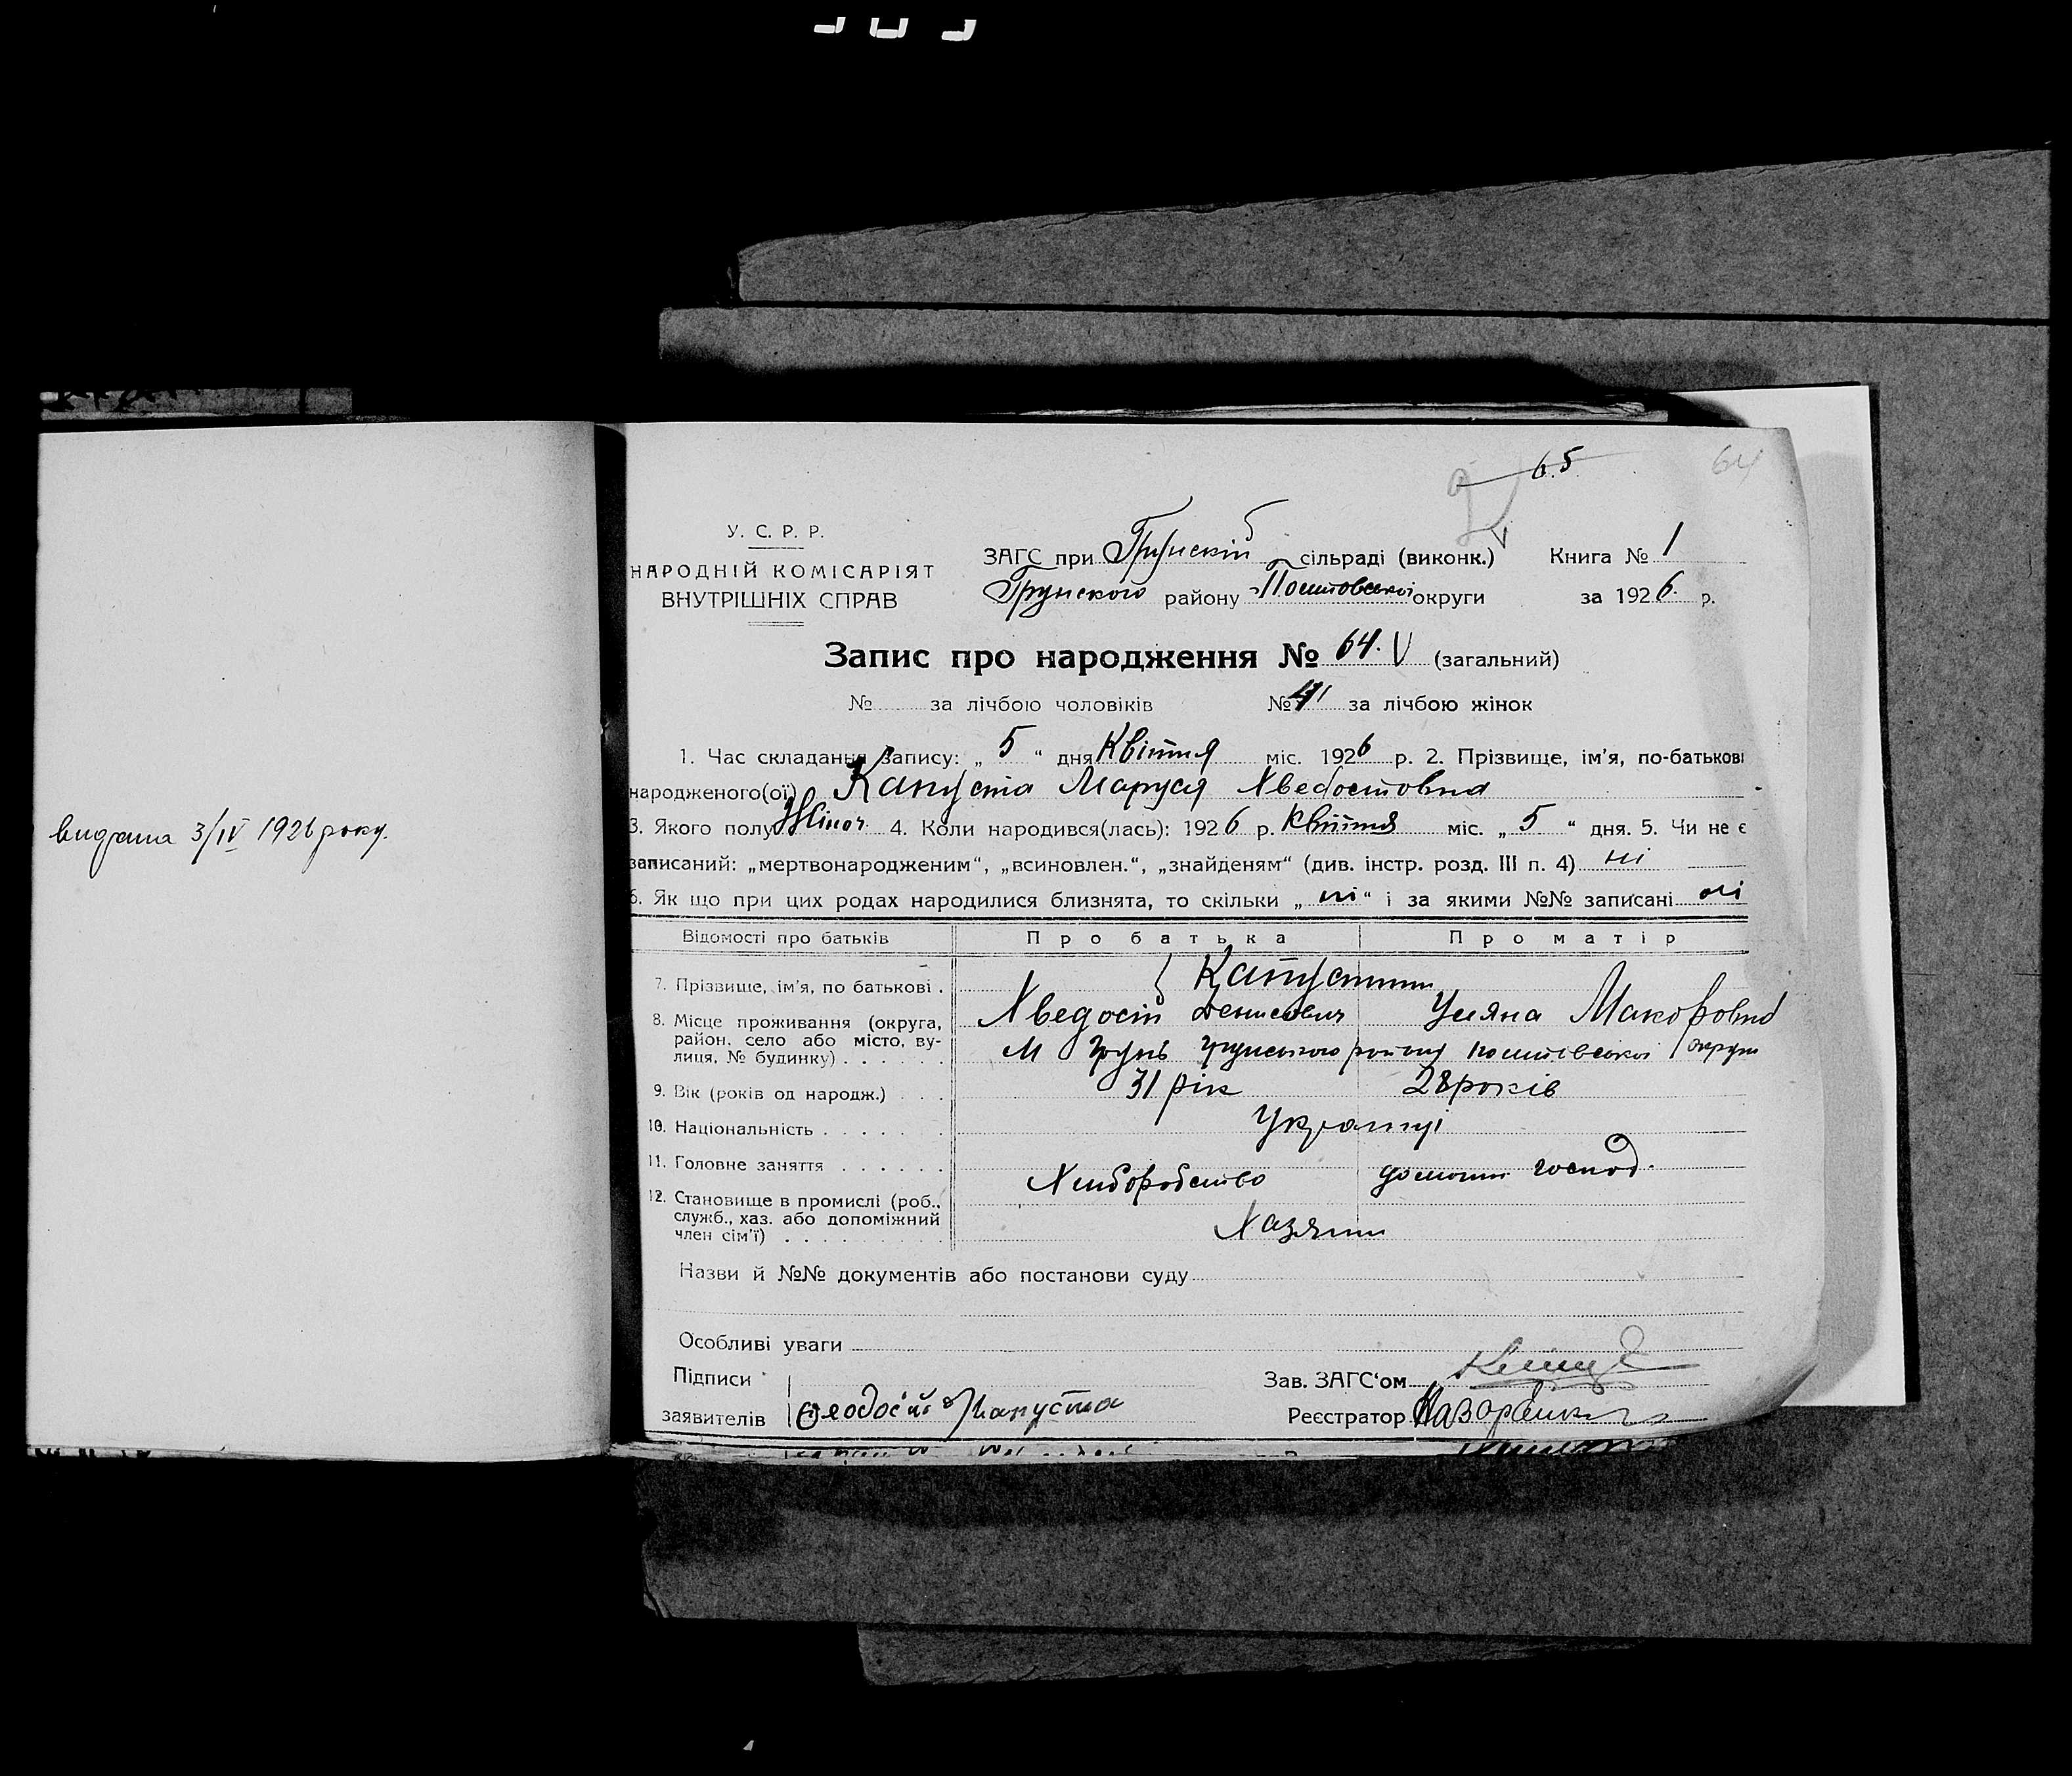 видана 3/IV 1926 року.
65
64
У. С. Р. Р.
НАРОДНІЙ КОМІСАРІЯТ
ВНУТРІШНІХ СПРАВ
ЗАГС при Грунскій сільраді (виконк.) Книга № 1
Грунского району Полтовської округи за 1926 р.
Запис про народження № 64. V (загальний)
№ за лічбою чоловіків № 41 за лічбою жінок
1. Час складання запису: „ 5 “ дня Квітня міс. 1926 р. 2. Прізвище, ім'я, по-батькові
народженого(ої) Капуста Маруся Хведостовна
3. Якого полу Жіноч 4. Коли народився(лась): 1926 р. Квітня міс. „ 5 “ дня. 5. Чи не є
записаний: „мертвонародженим“, „всиновлен.“, „знайденям“ (див. інстр. розд. III п. 4) ні
6. Як що при цих родах народилися близнята, то скільки „ ні “ і за якими №№ записані ні
Відомості про батьків Про батька Про матір
7. Прізвище, ім'я, по батькові . Капустини
Хведосій Денисович Уляна Макоровна
8. Місце проживання (округа,
район, село або місто, ву-
лиця, № будинку) . . . . . .
М Грунь Грунського району Полтівської округи
9. Вік (років од народж.) . . . 31 рік 28 років
10. Національність . . . . . . Українці
11. Головне заняття . . . . . . Хліборобство домашн господ.
12. Становище в промислі (роб.,
служб., хаз. або допоміжний
член сім'ї) . . . . . . . . . Хазяіни
Назви й №№ документів або постанови суду
Особливі уваги
Підписи
заявителів Феодосій Капуста
Зав. ЗАГС'ом
Реєстратор Назаренко